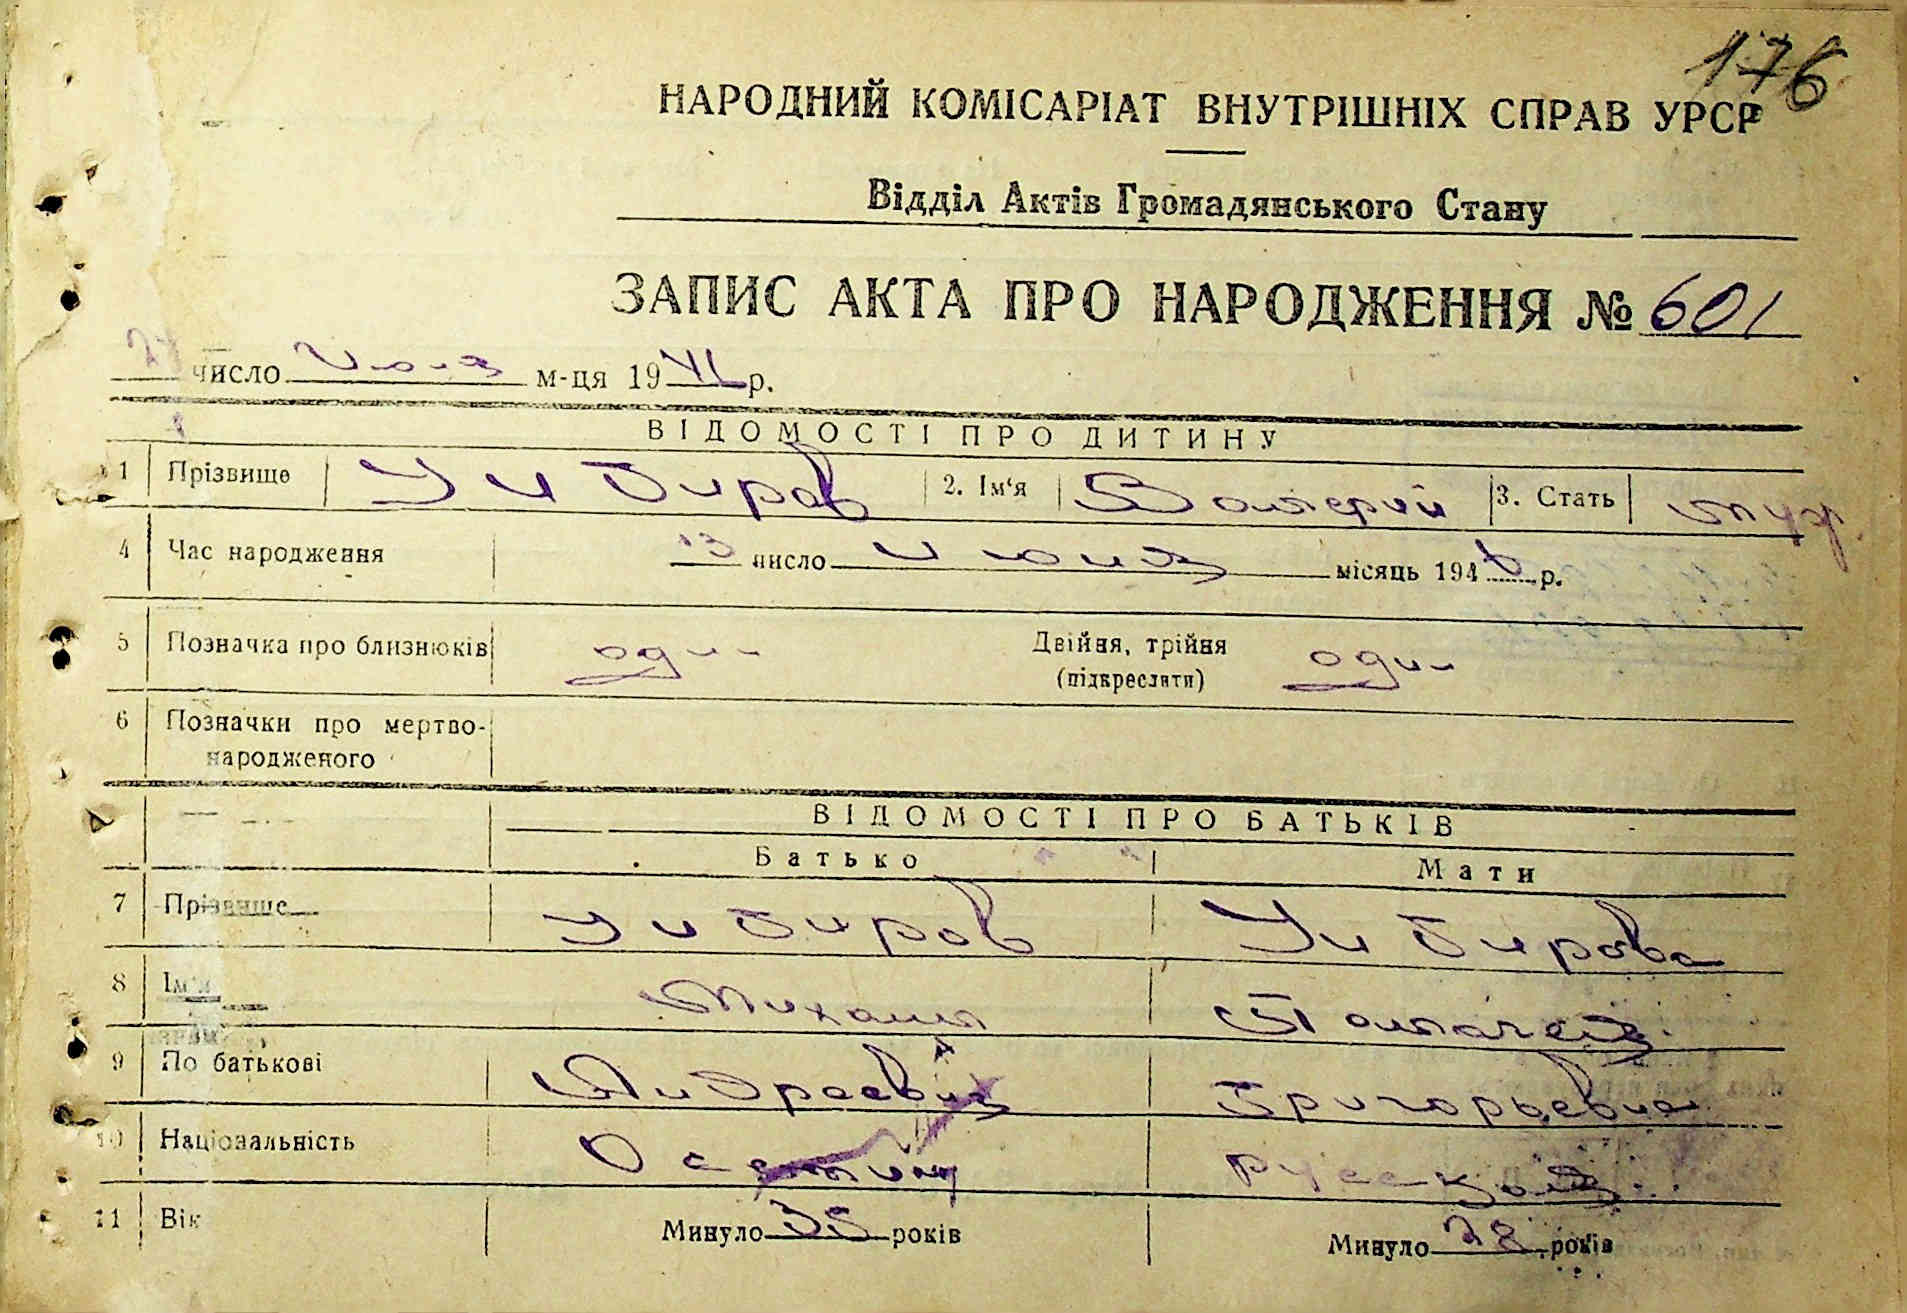 176
НАРОДНИЙ КОМІСАРІАТ ВНУТРІШНІХ СПРАВ УРСР
Відділ Актів Громадянського Стану
ЗАПИС АКТА ПРО НАРОДЖЕННЯ № 601
число м-ця 19 р.
ВІДОМОСТІ ПРО ДИТИНУ
1 Прізвище 2. Ім‘я Валерий 3. Стать муж.
4 Час народження 13 число місяць 1946 р.
5 Позначка про близнюків один Двійня, трійня один
(підкреслити)
6 Позначки про мертво-
народженого
ВІДОМОСТІ ПРО БАТЬКІВ
Батько Мати
7 Прізвище
8 Ім‘я Михаил
9 По батькові Андреевич Григорьевна
10 Національність Осетин русская
11 Вік Минуло 35 років Минуло 28 років